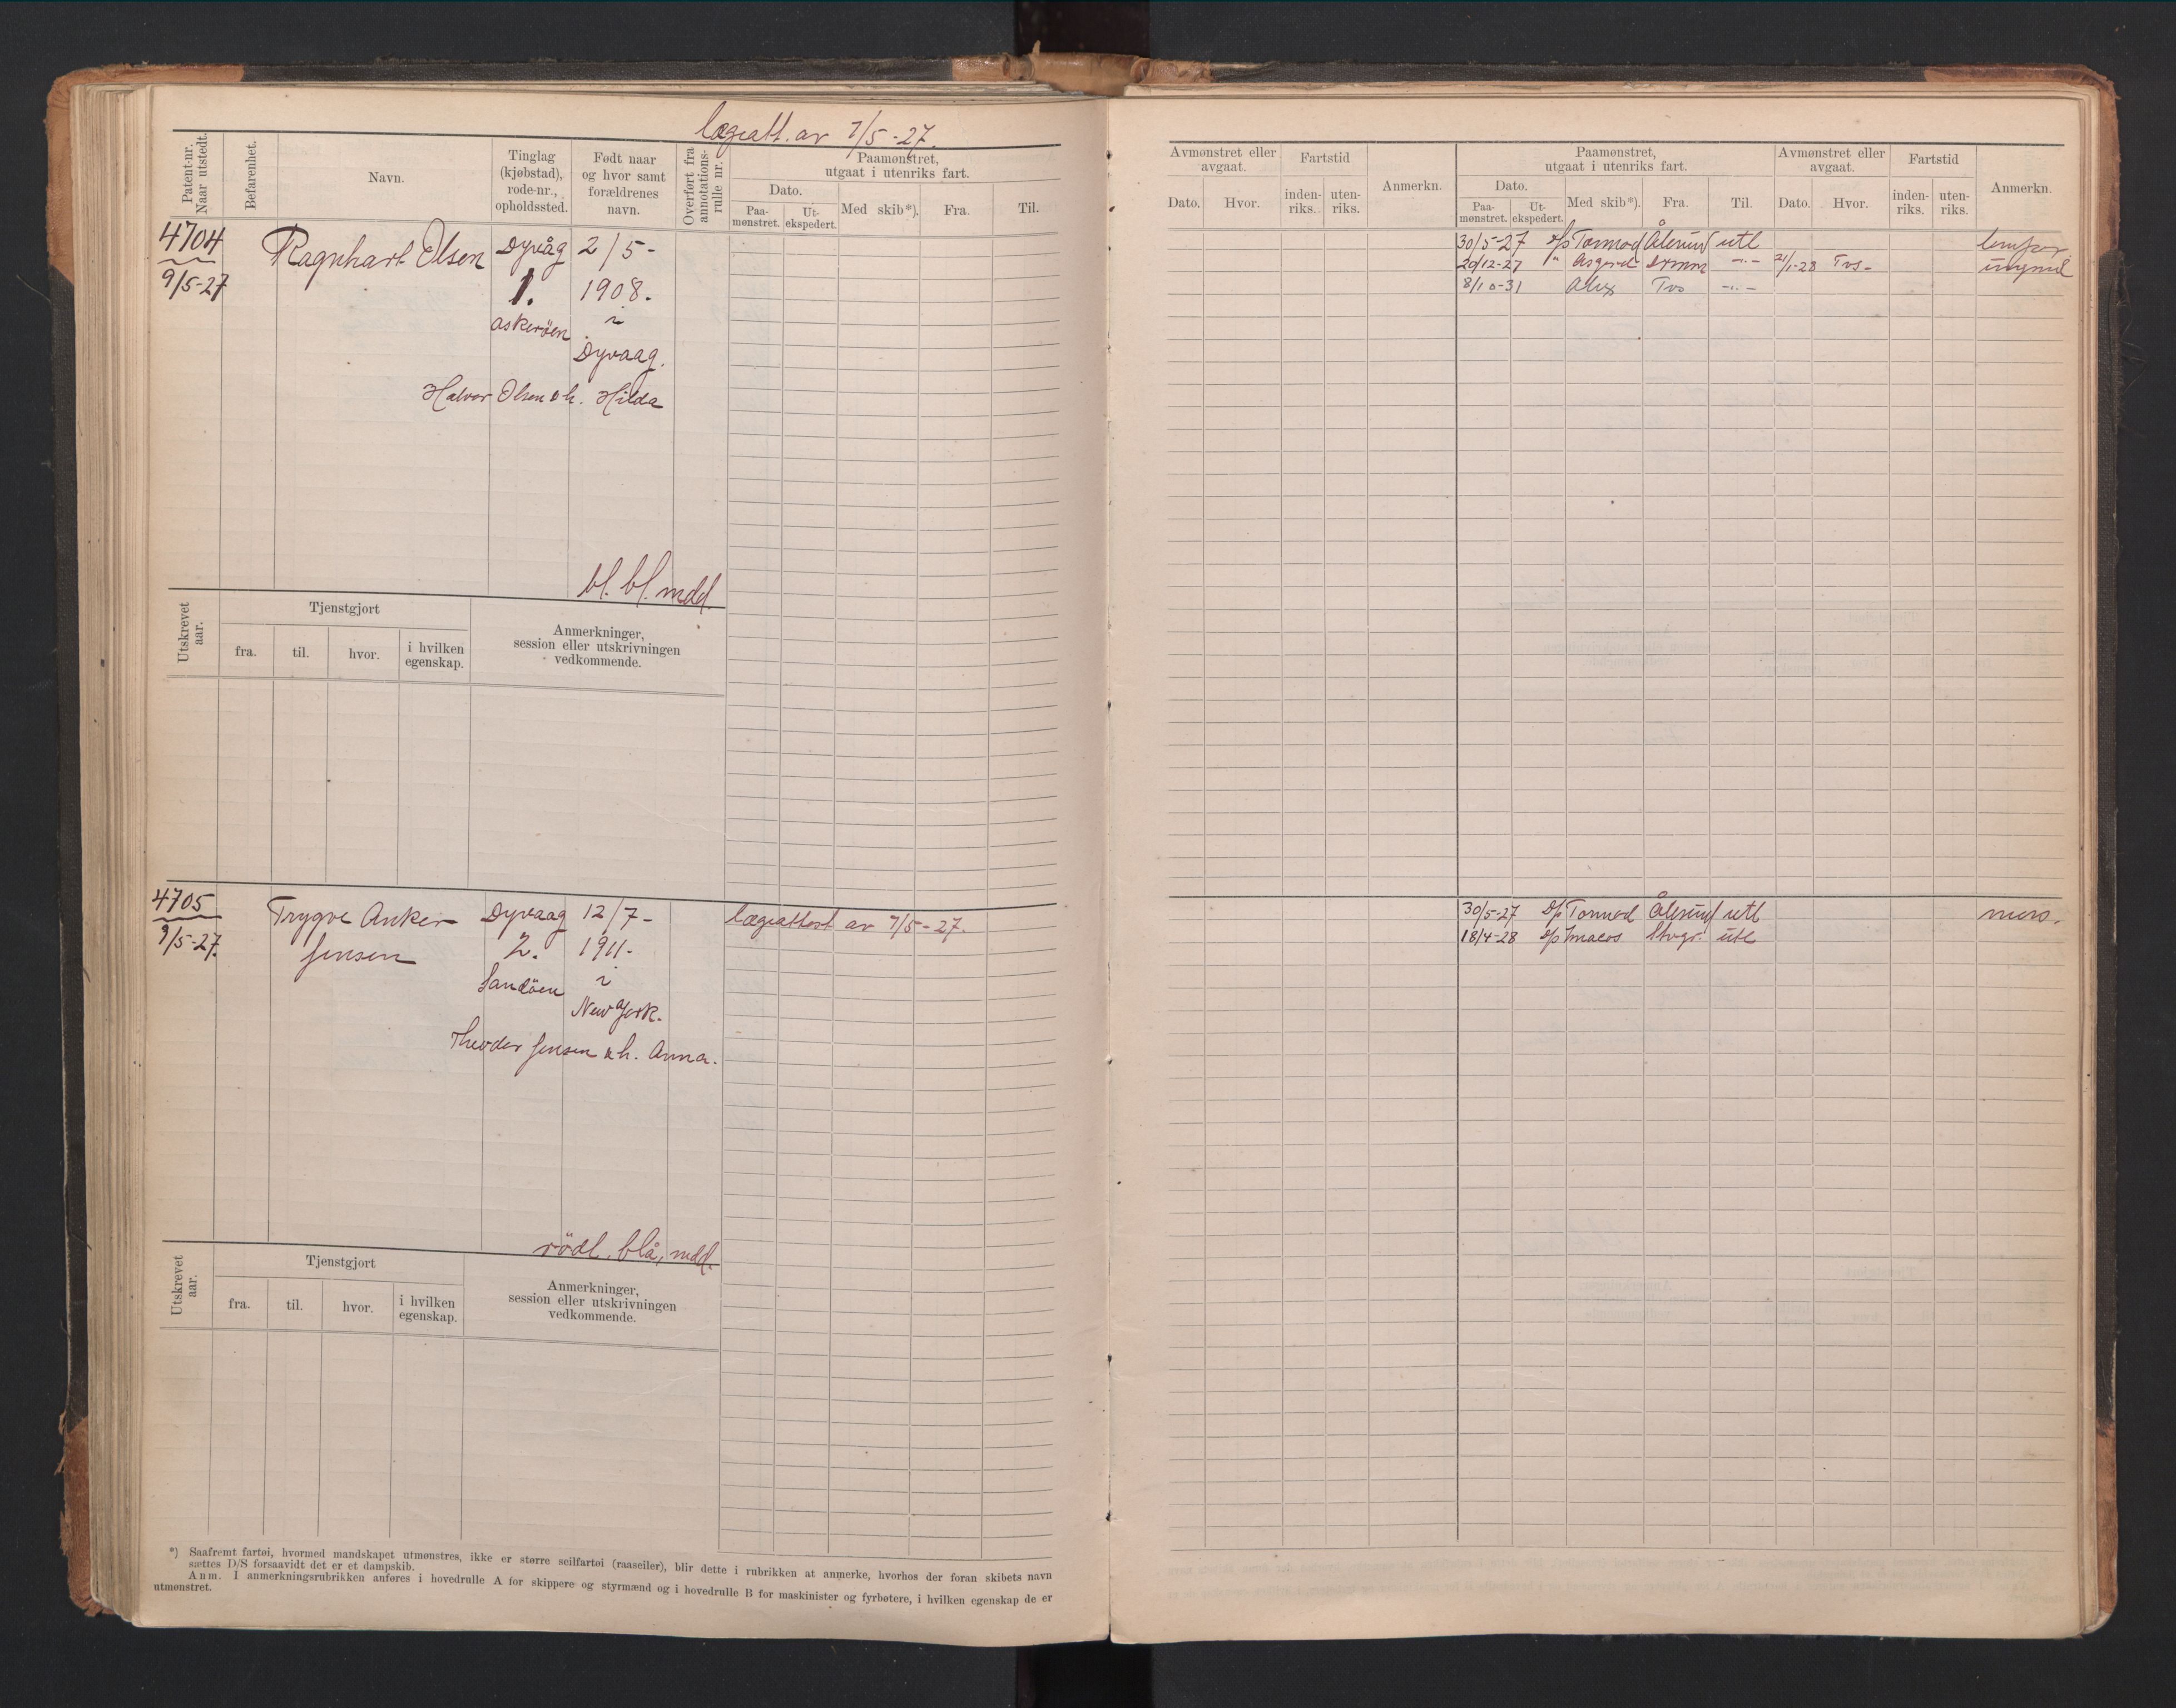 lægeatt. av 7/5-27.
Patent-nr. Naar utstedt.
Befarenhet.
Navn.
Tinglag (kjøbstad), rode-nr., opholdssted.
Født naar og hvor samt forældrenes navn.
Overført fra annotations-rulle nr.
Paamønstret, utgaat i utenriks fart.
Dato.
Paa-mønstret.
Ut-ekspedert.
Med skib*).
Fra.
Til.
4704
9/5-27
Ragnhart Olsen
Dyvåg
1.
Askerøen
2/5-
1908.
i
Dyvaag.
Halvor Olsen & h. Hilda
bl. bl. mdd.
Utskrevet aar.
Tjenstgjort
fra.
til.
hvor.
i hvilken egenskap.
Anmerkninger,
session eller utskrivningen
vedkommende.
4705
9/5-27.
Trygve Anker
Jensen
Dyvaag
2.
Sandöen
12/7-
1911.
i
New York.
Theodor Jensen & h. Anna.
lægeattest av 7/5-27.
rödl. blå, mdd.
Utskrevet aar.
Tjenstgjort
fra.
til.
hvor.
i hvilken egenskap.
Anmerkninger,
session eller utskrivningen
vedkommende.
*) Saafremt fartøi, hvormed mandskapet utmønstres, ikke er større seilfartøi (raaseiler), blir dette i rubrikken at anmerke, hvorhos der foran skibets navn
sættes D/S forsaavidt det er et dampskib.
Anm. I anmerkningsrubrikken anføres i hovedrulle A for skippere og styrmænd og i hovedrulle B for maskinister og fyrbøtere, i hvilken egenskap de er
utmønstret.
Avmønstret eller avgaat.
Dato.
Hvor.
Fartstid
inden-riks.
uten-riks.
Anmerkn.
Paamønstret, utgaat i utenriks fart.
Dato.
Paa-mønstret.
Ut-ekspedert.
Med skib*).
Fra.
Til.
Avmønstret eller avgaat.
Dato.
Hvor.
Fartstid
inden-riks.
uten-riks.
Anmerkn.
30/5-27 D/s Tormod Ålesund utl
20/12-27 " Asgerd Drmm -"- 21/1-28 Tvs-
8/10-31 Alex Tvs -"-
30/5-27 D/s Tormod Ålesund utl
18/4-28 D/s Stvgr. utl